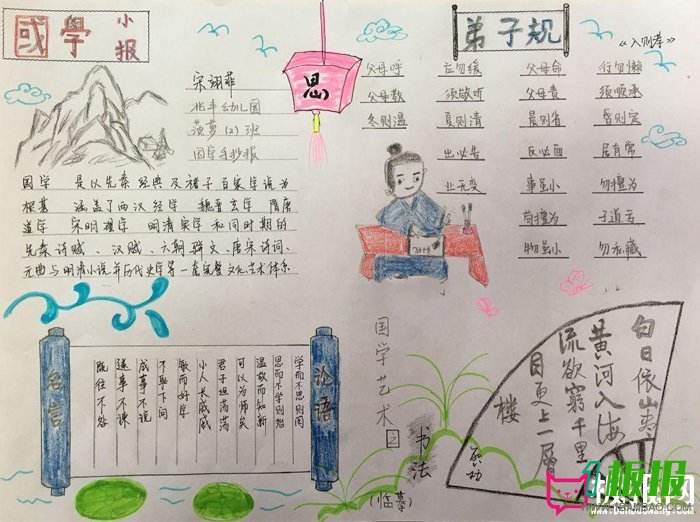 國學小报
宋诩菲
北丰幼儿园
菠萝(2)班
国学手抄报
国学 是以先秦经典及诸子百家学说为
根基 涵盖了两汉经学 魏晋玄学 隋唐
道学 宋明理学 明清实学和同时期的
先秦诗赋、汉赋、六朝骈文、唐宋诗词、
元曲与明清小说并历代史学等一套完整文化艺术体系
思
弟子规
《入则孝》
父母呼 应勿缓 父母命 行勿懒
父母教 须敬听 父母责 须顺承
冬则温 夏则凊 晨则省 昏则定
出必告 反必面 居有常
业无变 事虽小 勿擅为
苟擅为 子道亏
物虽小 勿私藏
论语
学而不思则罔
思而不学则殆
温故而知新
可以为师矣
君子坦荡荡
小人长戚戚
敏而好学
不耻下问
成事不说
遂事不谏
既往不咎
名言
国学艺术之
书法
(临摹)
白日依山尽
黄河入海
流欲窮千里
目更上一層
楼
启功
板报